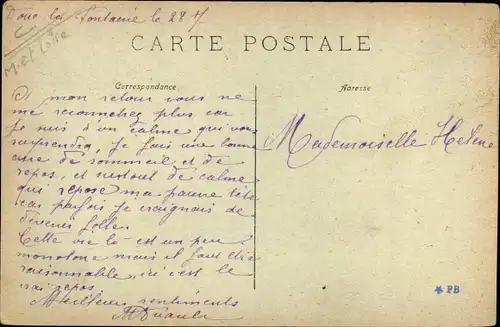 Doué la Fontaine le 28-7
M. et Loire
CARTE POSTALE
Correspondance
Adresse
A mon retour vous ne
me reconnaîtrez plus car
je suis d'un calme qui vous
surprendra, je fais une bonne
cure de sommeil et de
repos, et surtout de calme
qui repose ma pauvre tête
car parfois je craignais de
devenir folle.
Cette vie là est un peu
monotone mais il faut être
raisonnable, ici c'est le
vrai repos
Meilleurs sentiments
Mademoiselle Helene
PB